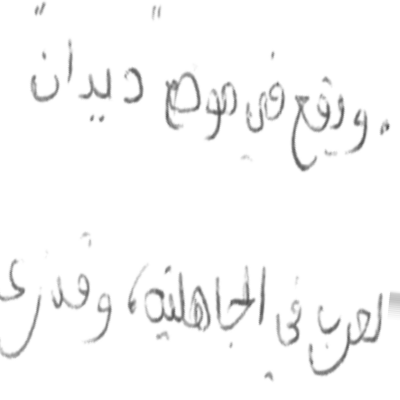 . ويقع في موضع "ديدان"
لعرب في الجاهلية، وقد